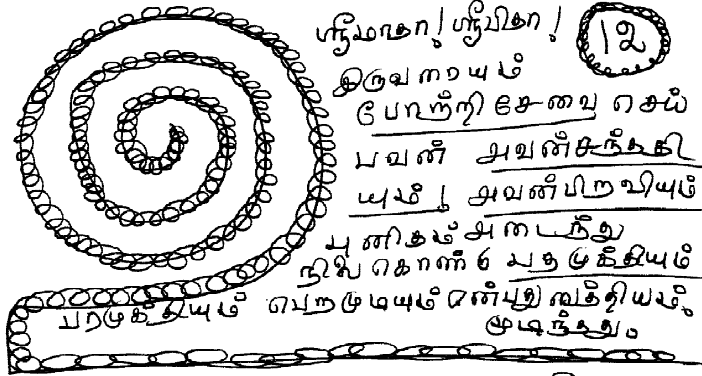 ஸ்ரீமாதா! ஸ்ரீபிதா! 12
இருவரையும்
போற்றி சேவை செய்
பவன் அவன்சந்ததி
யும்! அவன்பிறவியும்
புனிதம் அடைந்து
நிலை கொண்டு பதமுக்தியும்
பரமுக்தியும் பெறமுடியும் என்பது சத்தியம்.
முடிந்தது.